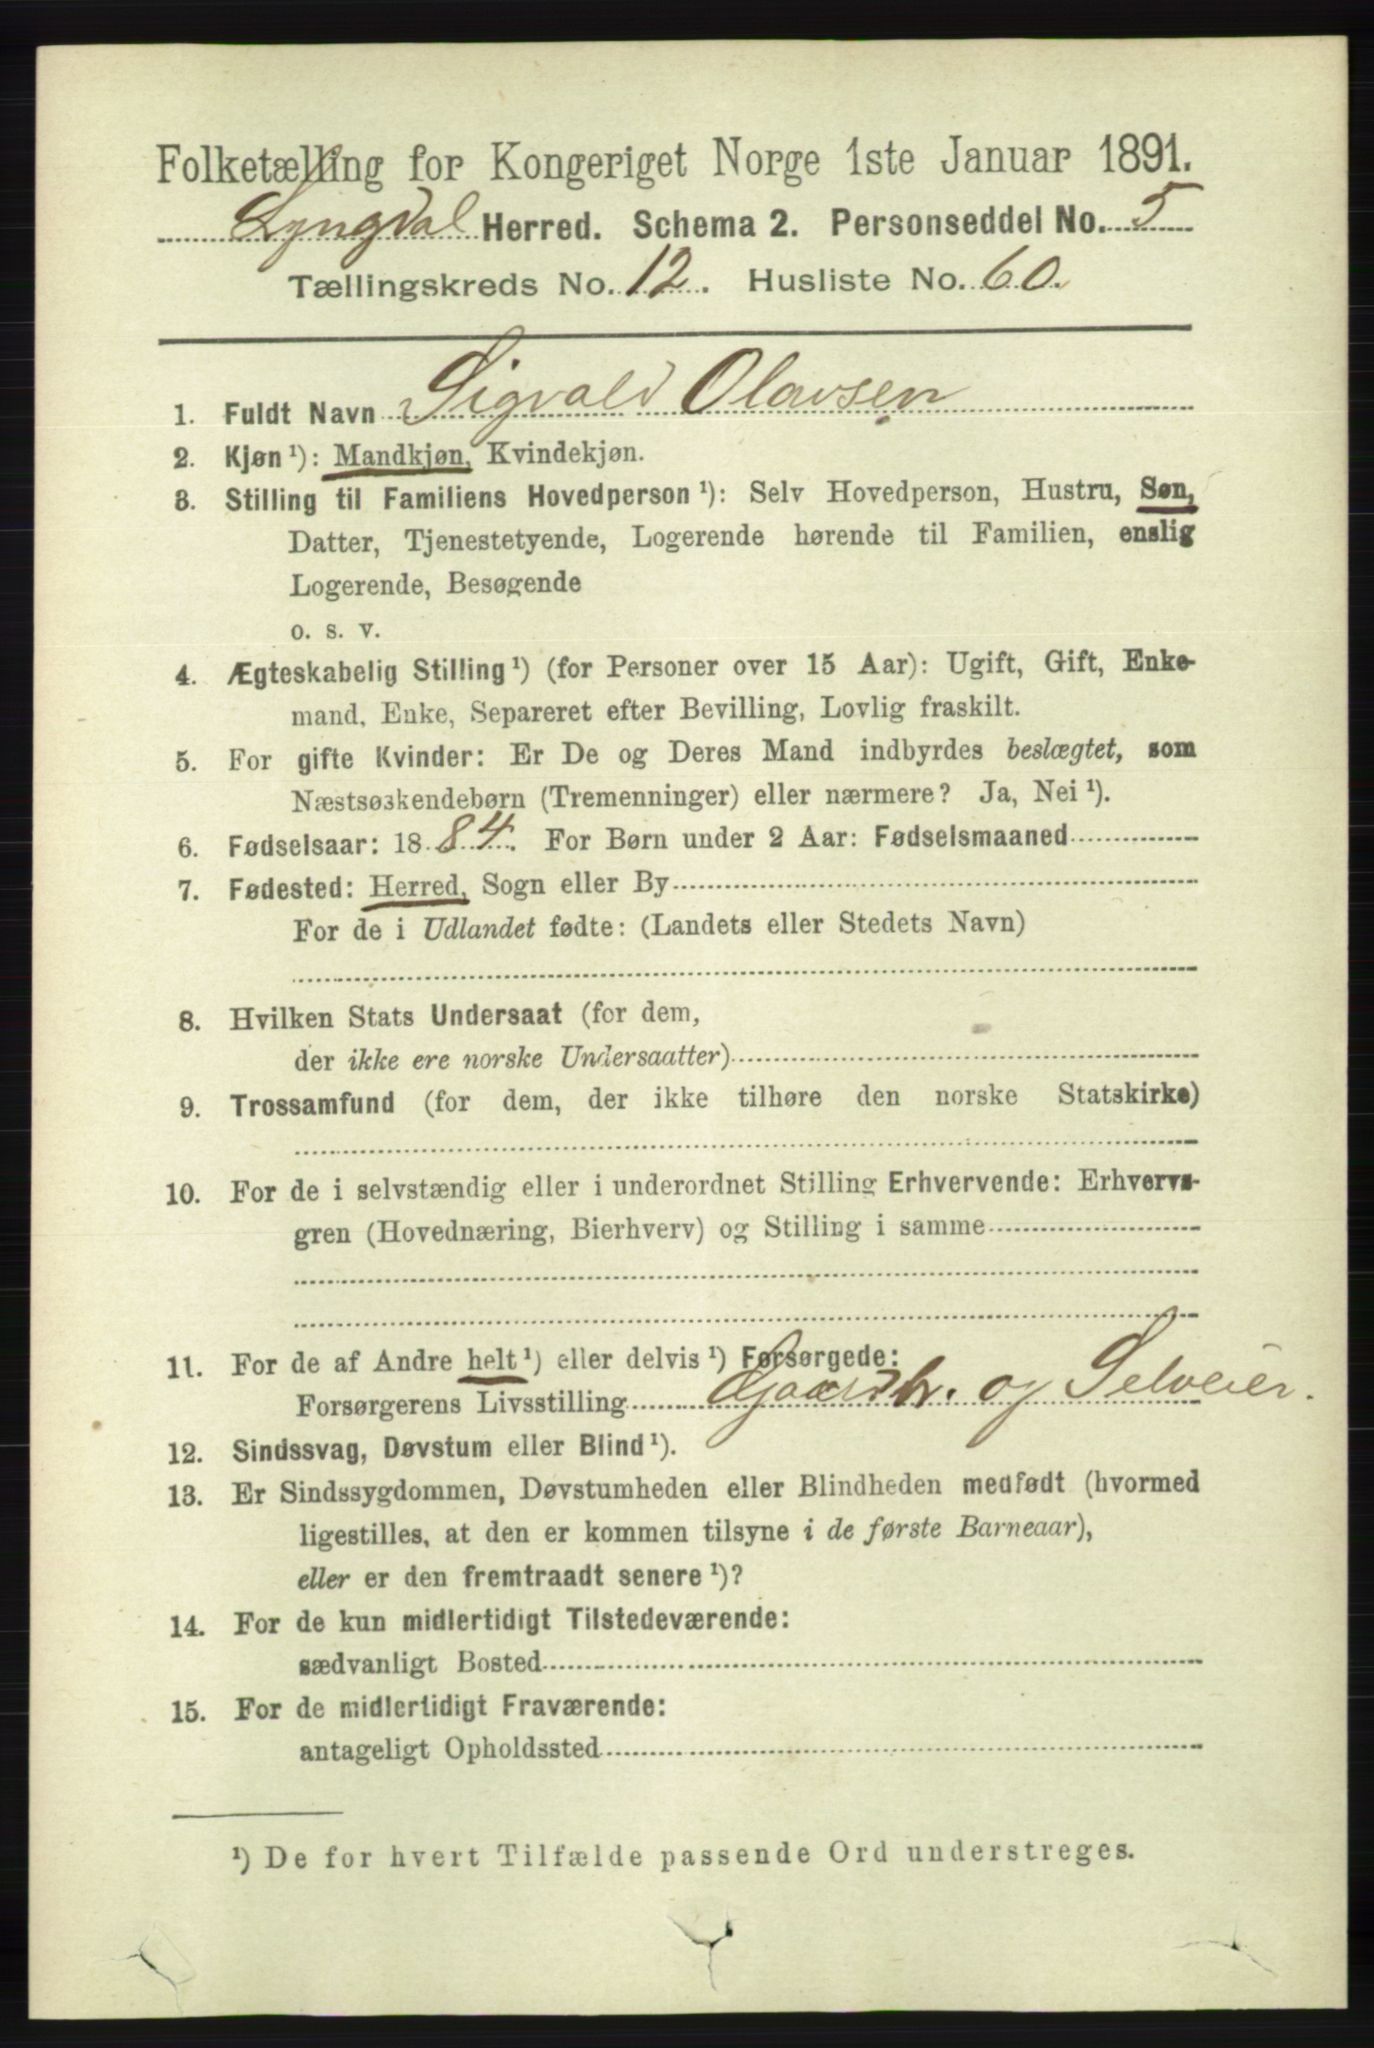 Folketælling for Kongeriget Norge 1ste Januar 1891.
Lyngdal Herred. Schema 2. Personseddel No. 5
Tællingskreds No. 12. Husliste No. 60.
1. Fuldt Navn Sigvald Olavsen
2. Kjøn ¹): Mandkjøn, Kvindekjøn.
3. Stilling til Familiens Hovedperson ¹): Selv Hovedperson, Hustru, Søn,
Datter, Tjenestetyende, Logerende hørende til Familien, enslig
Logerende, Besøgende
o. s. v.
4. Ægteskabelig Stilling ¹) (for Personer over 15 Aar): Ugift, Gift, Enke-
mand, Enke, Separeret efter Bevilling, Lovlig fraskilt.
5. For gifte Kvinder: Er De og Deres Mand indbyrdes beslægtet, som
Næstsøskendebørn (Tremenninger) eller nærmere? Ja, Nei ¹).
6. Fødselsaar: 1884. For Børn under 2 Aar: Fødselsmaaned
7. Fødested: Herred, Sogn eller By
For de i Udlandet fødte: (Landets eller Stedets Navn)
8. Hvilken Stats Undersaat (for dem,
der ikke ere norske Undersaatter)
9. Trossamfund (for dem, der ikke tilhøre den norske Statskirke)
10. For de i selvstændig eller i underordnet Stilling Erhvervende: Erhvervs-
gren (Hovednæring, Bierhverv) og Stilling i samme
11. For de af Andre helt ¹) eller delvis ¹) Forsørgede:
Forsørgerens Livsstilling Gaardbr. og Selveier.
12. Sindssvag, Døvstum eller Blind ¹).
13. Er Sindssygdommen, Døvstumheden eller Blindheden medfødt (hvormed
ligestilles, at den er kommen tilsyne i de første Barneaar),
eller er den fremtraadt senere ¹)?
14. For de kun midlertidigt Tilstedeværende:
sædvanligt Bosted
15. For de midlertidigt Fraværende:
antageligt Opholdssted
¹) De for hvert Tilfælde passende Ord understreges.